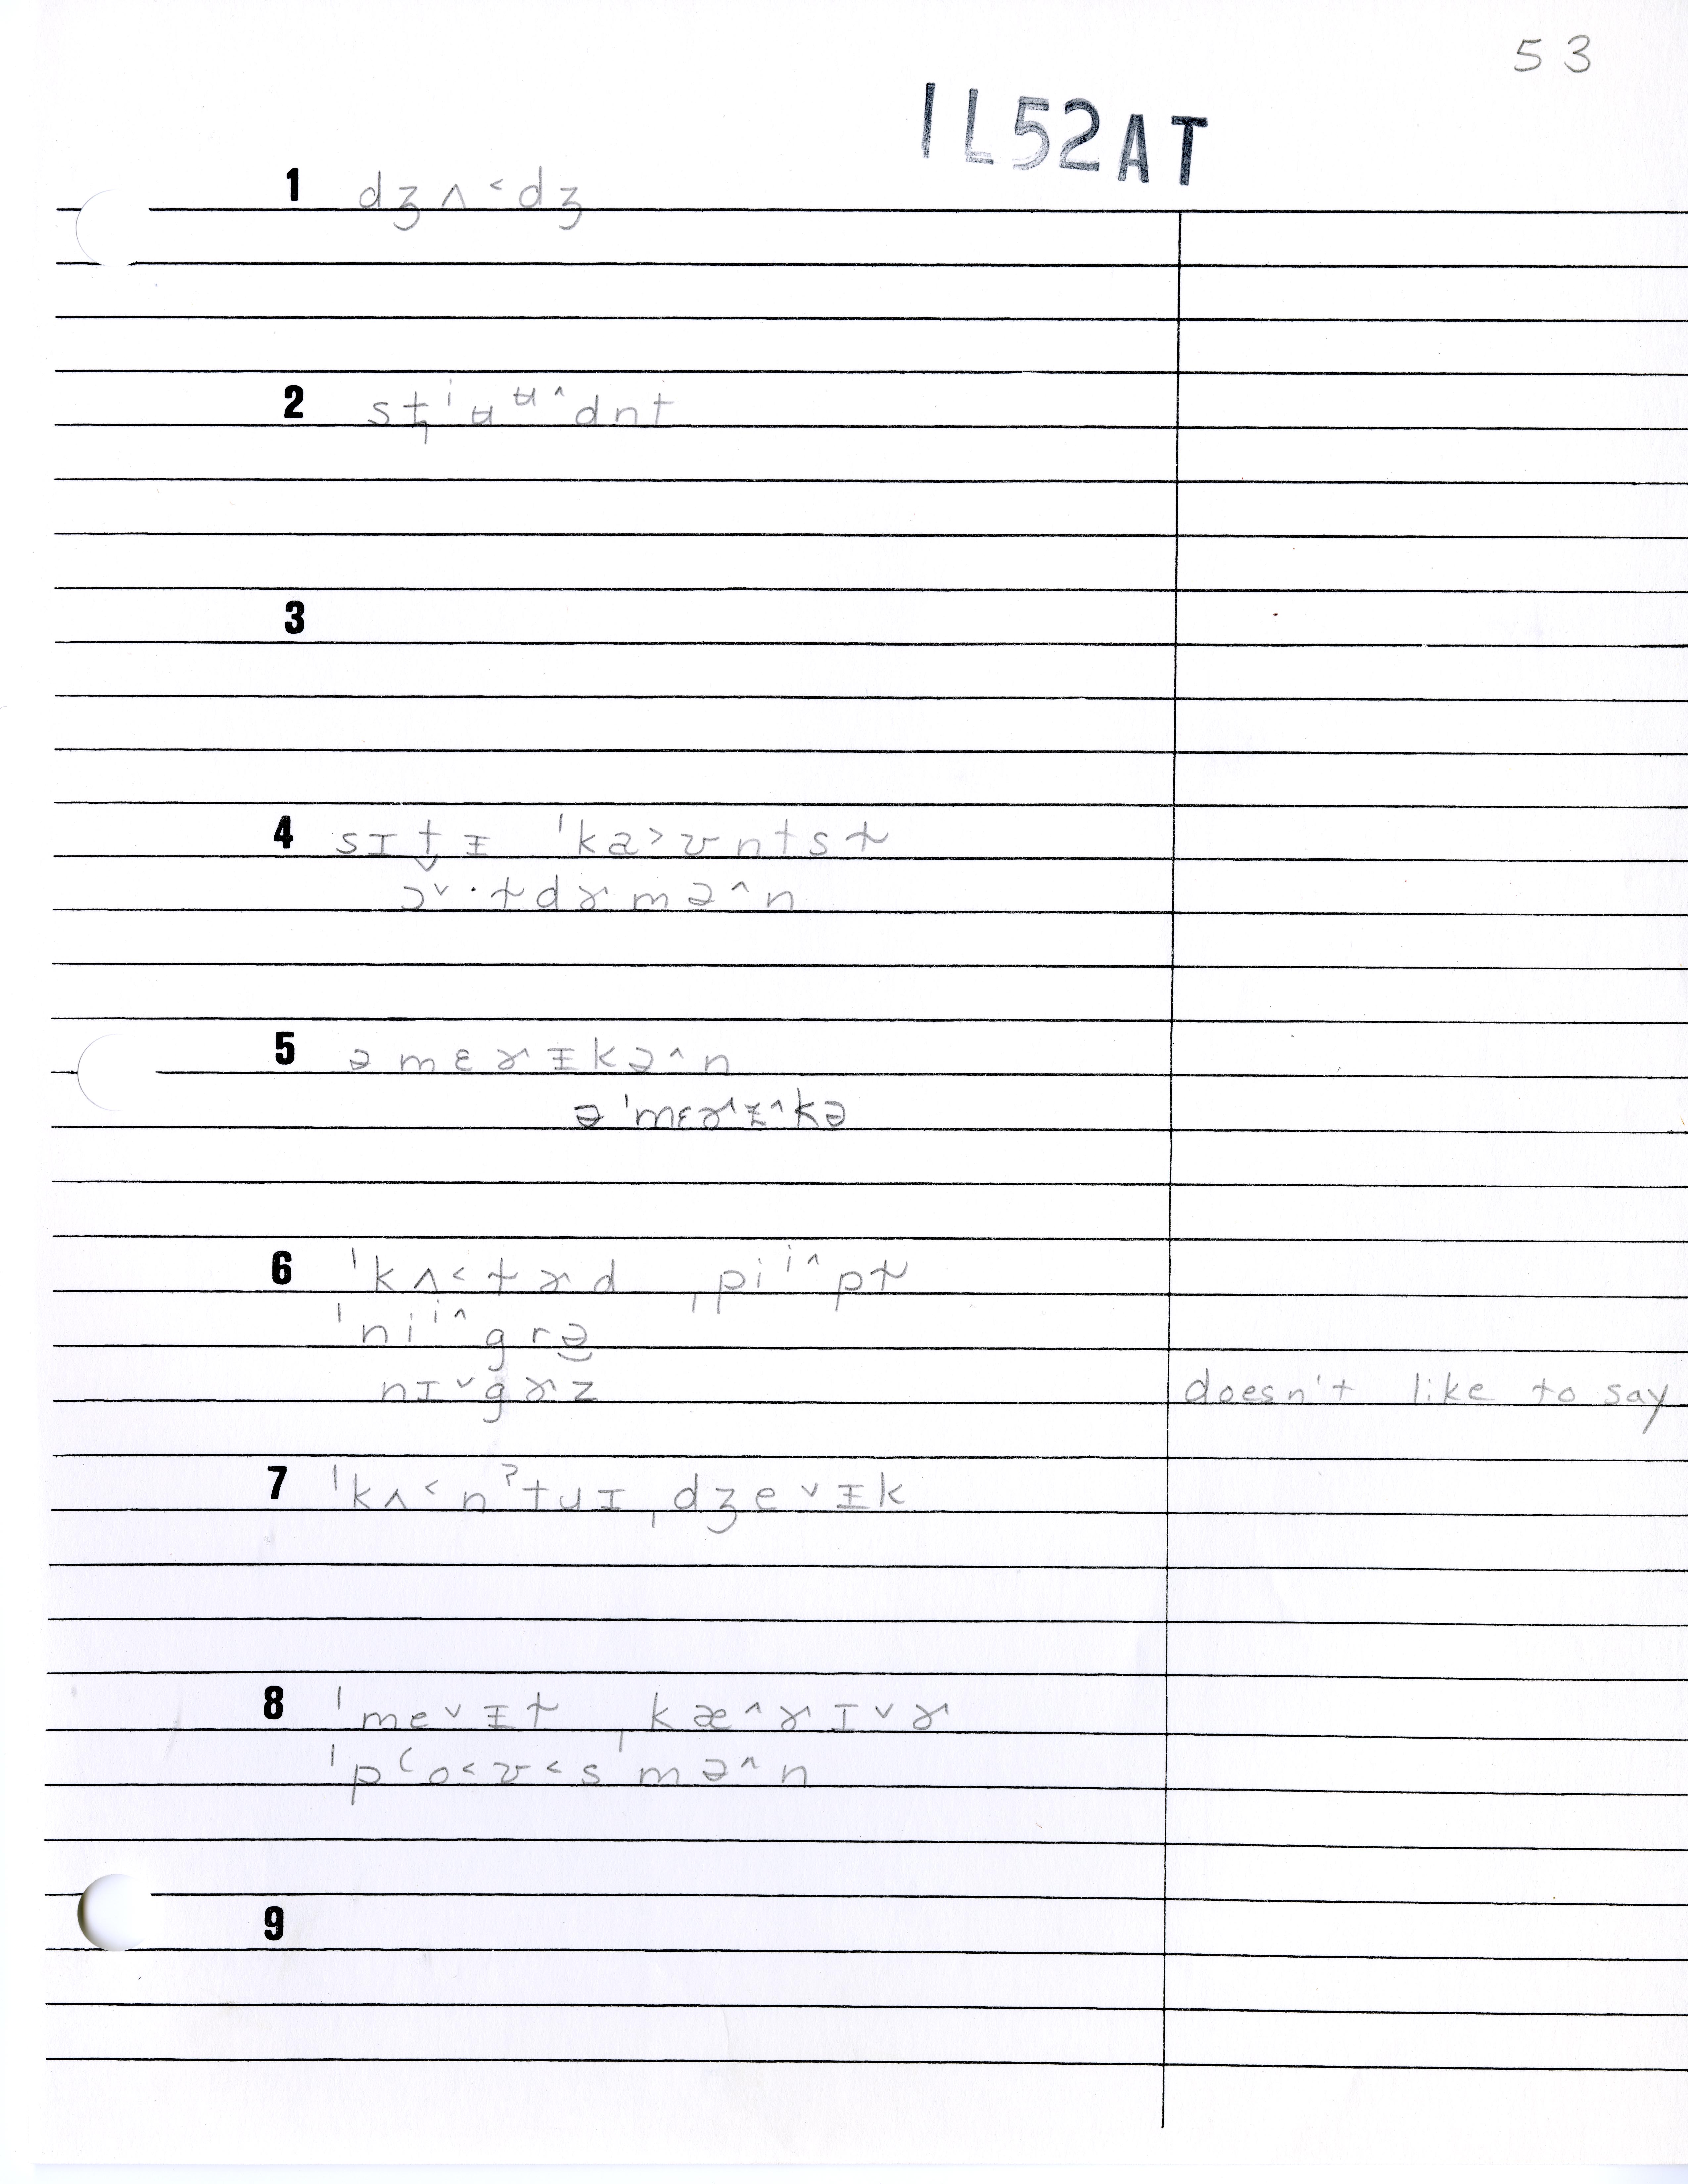 53
IL52AT
1 dʒʌ˂dʒ
2 st̡ⁱʉᵾ˄dnt
3
4 sɪt̬ᵻ ˈka˃ʊntsɫ
ɔ˅·ɫdɚmə˄n
5 əmɛɚᵻkə˄n
əˈmɛɚᵻ˄kə
6 ˈkʌ˂ɫɚd ˌpiⁱ˄pɫ
ˈniⁱ˄grə̮
nɪ˅gɚz doesn't like to say
7 ˈkʌ˂nˀtɹɪˌdʒe˅ᵻk
8 ˈme˅ᵻɫ ˌkæ˄ɚɪ˅ɚ
ˈpʻo˂ʊ˂sˈmə˄n
9